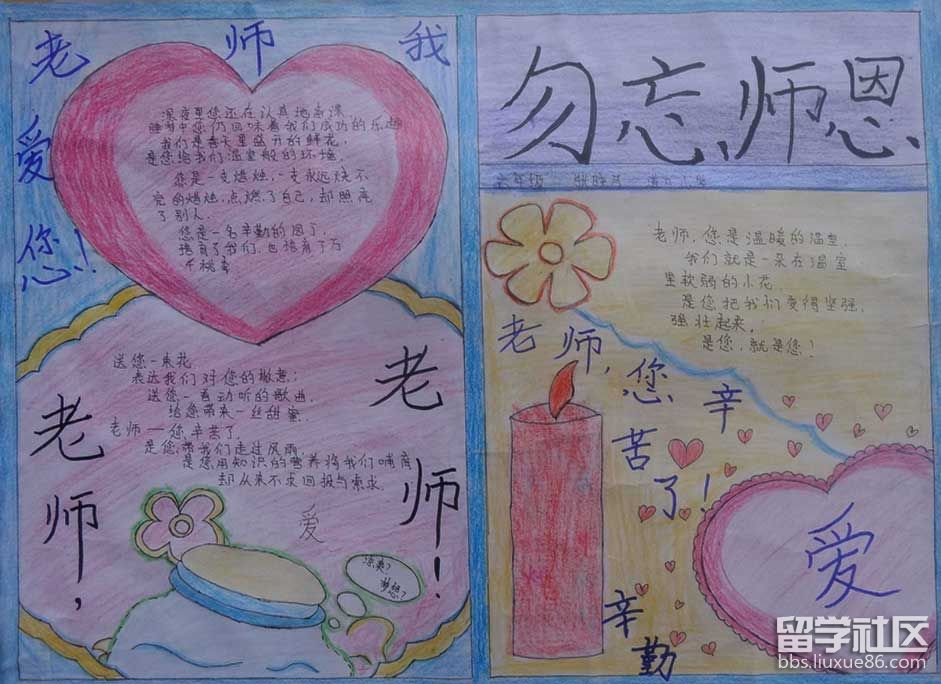 老师我
爱
您!
深夜里您还在认真地备课
睡梦中您仍回味着我们成功的乐趣
我们是春天里盛开的鲜花,
是您给我们温室般的环境.
您是一支蜡烛,一支永远烧不
完的蜡烛,点燃了自己,却照亮
了别人.
您是一名辛勤的园丁
培育了我们,也培育了万
千桃李
送您一束花
表达我们对您的敬意;
送您一首动听的歌曲,
给您带来一丝甜蜜.
老师——您辛苦了,
是您带我们走过风雨
是您用知识的营养将我们哺育
却从来不求回报与索求.
爱
老师,
老师!
梦想?
勿忘师恩
六年级
老师,您是温暖的温室.
我们就是一朵在温室
里软弱的小花
是您把我们变得坚强,
强壮起来,
是您,就是您!
老师,您辛
苦了!
辛勤
爱
留学社区
bbs.liuxue86.com